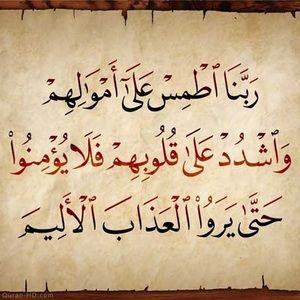 رَبَّنَا ٱطْمِسْ عَلَىٰٓ أَمْوَٰلِهِمْ
وَٱشْدُدْ عَلَىٰ قُلُوبِهِمْ فَلَا يُؤْمِنُوا۟
حَتَّىٰ يَرَوُا۟ ٱلْعَذَابَ ٱلْأَلِيمَ
Quran-HD.com